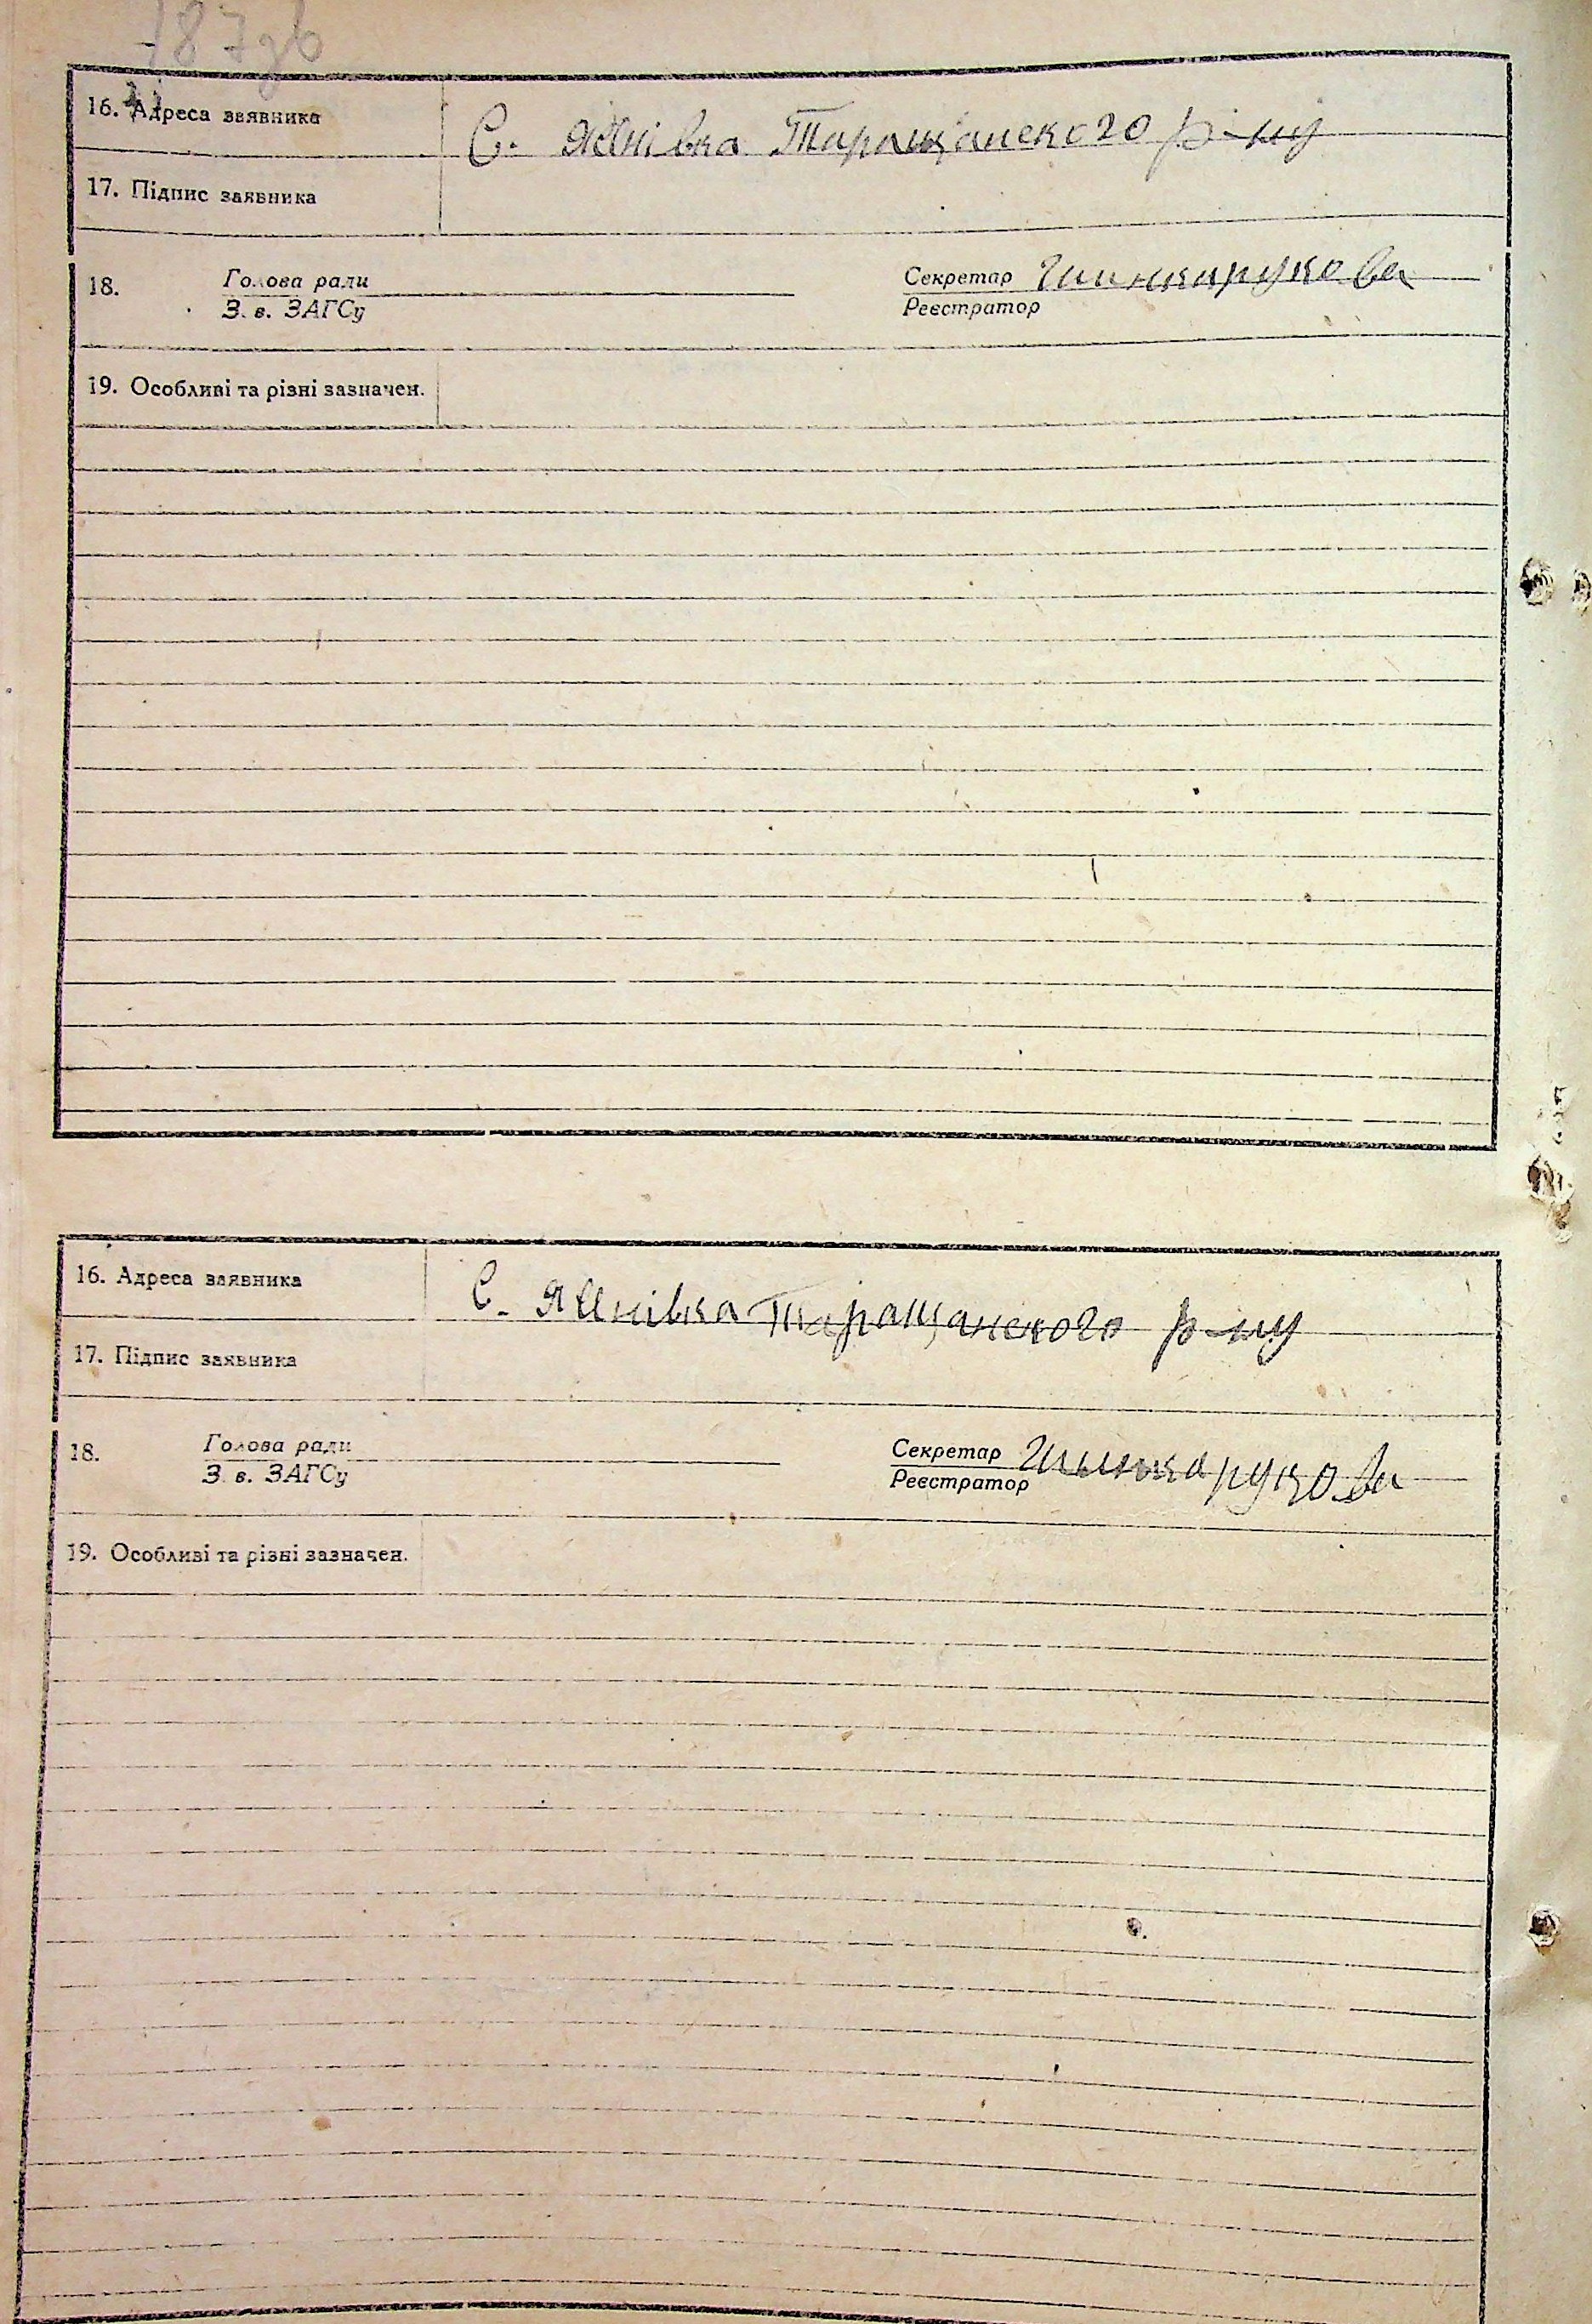 787зв
16. Адреса заявника С. Янівка Таращанского р-ну
17. Підпис заявника
18. Голова ради Секретар Шинкарукова
З. в. ЗАГСу Реєстратор
19. Особливі та різні зазначен.
16. Адреса заявника С. Янівка Таращанского р-ну
17. Підпис заявника
18. Голова ради Секретар Шинкарукова
З. в. ЗАГСу Реєстратор
19. Особливі та різні зазначен.